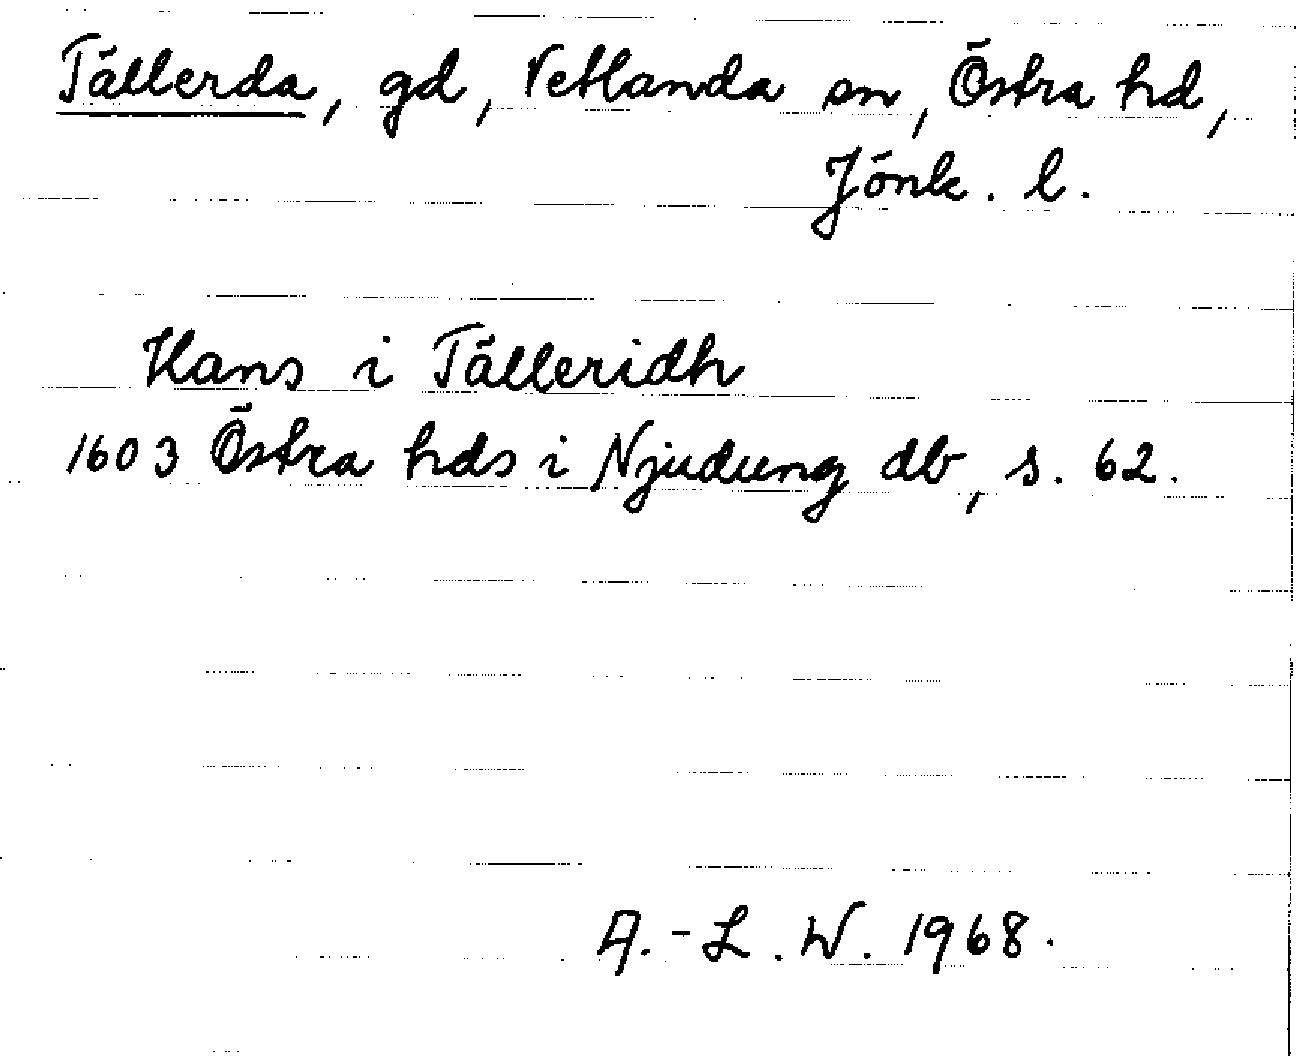 Tällerda, gd, Vetlanda sn, Östra hd,
Jönk. l.
Hans i Tälleridh
1603 Östra hds i Njudung db, s. 62.
A.-L. W. 1968.